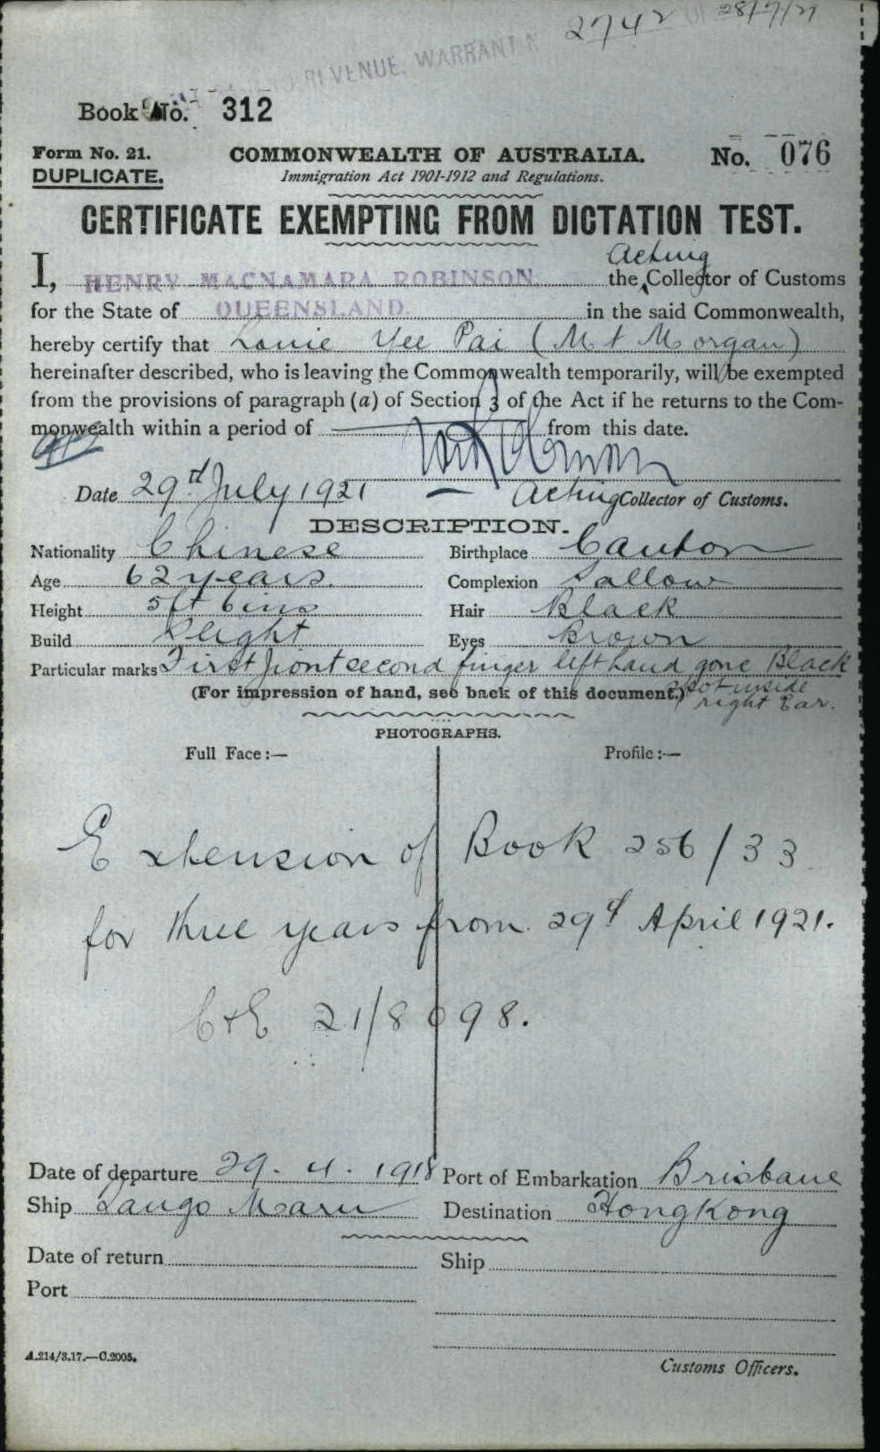 2742 28/7/21
REVENUE. WARRANT
Book No. 312
Form No. 21. COMMONWEALTH OF AUSTRALIA. No. 076
DUPLICATE. Immigration Act 1901-1912 and Regulations.
CERTIFICATE EXEMPTING FROM DICTATION TEST.
Acting
I, HENRY MACNAMARA ROBINSON the Collector of Customs
for the State of QUEENSLAND. in the said Commonwealth,
hereby certify that Louie Yee Pai (Mt Morgan)
hereinafter described, who is leaving the Commonwealth temporarily, will be exempted
from the provisions of paragraph (a) of Section 3 of the Act if he returns to the Com-
monwealth within a period of from this date.
Date 29th July 1921 Acting Collector of Customs.
DESCRIPTION.
Nationality Chinese Birthplace Canton
Age 62 years. Complexion Sallow
Height 5ft 6ins Hair Black
Build Slight Eyes Brown
Particular marks First joint second finger left hand gone Black
(For impression of hand, see back of this document.) spot inside
right Ear.
PHOTOGRAPHS.
Full Face:— Profile:—
Extension of Book 256/33
for three years from 29th April 1921.
C&E 21/8098.
Date of departure 29.4.1918 Port of Embarkation Brisbane
Ship Tango Maru Destination HongKong
Date of return Ship
Port
A.214/3.17.—C.2005. Customs Officers.